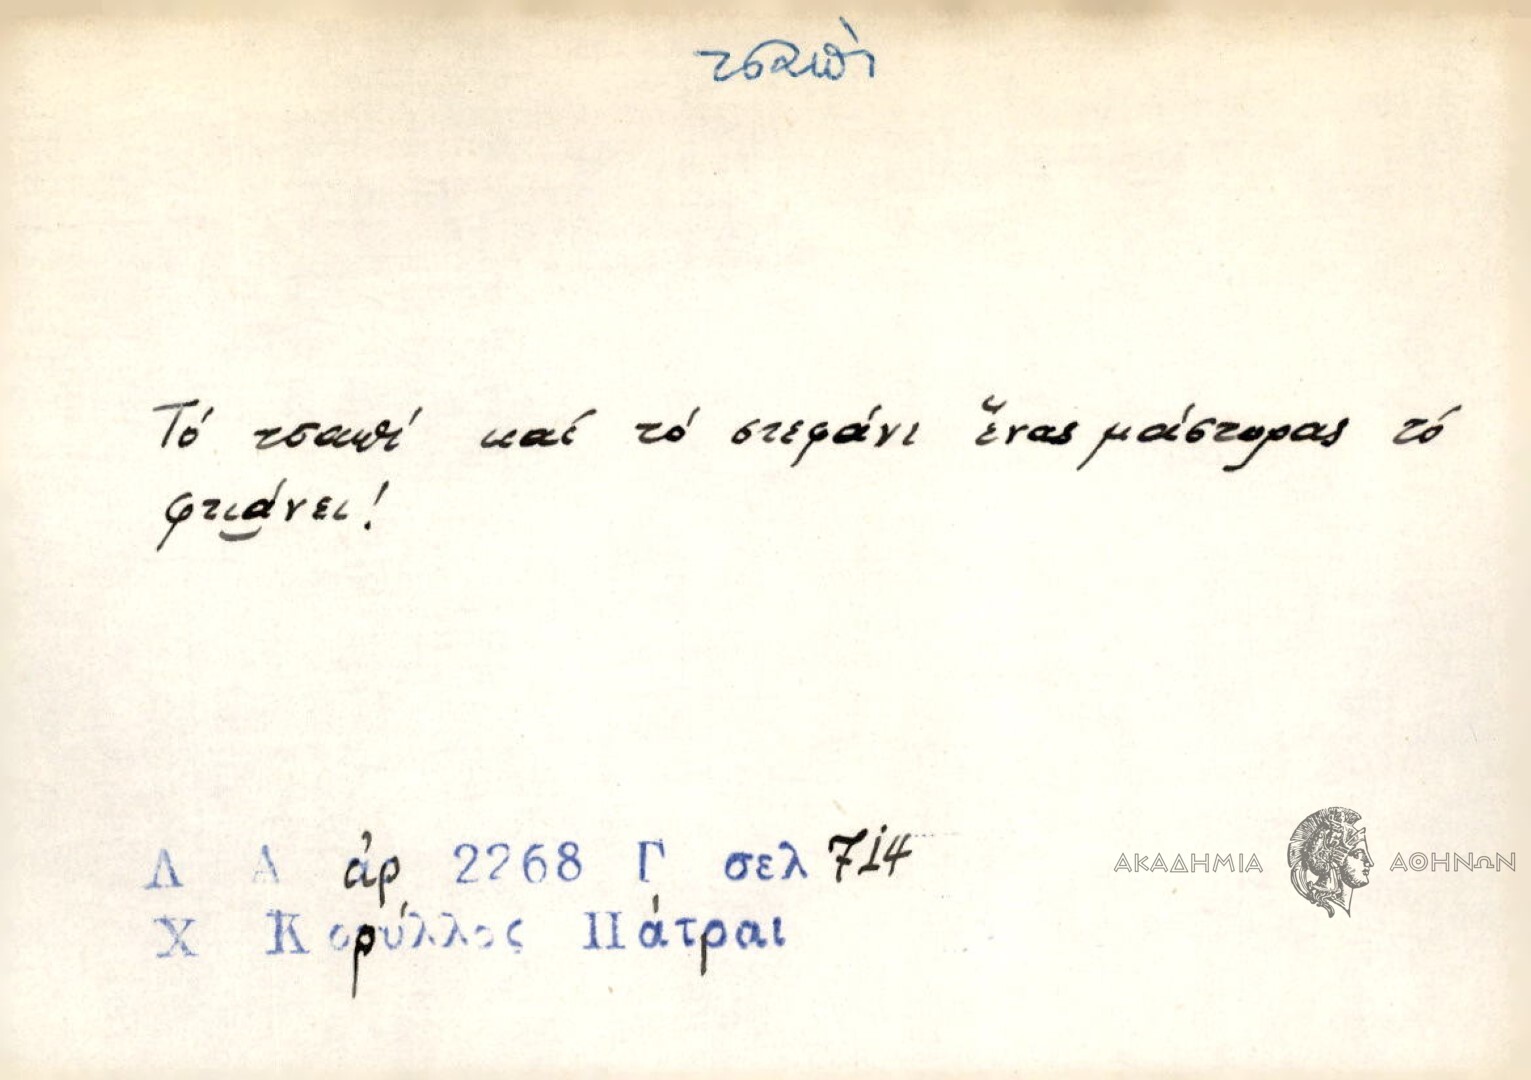 τσαπὶ
Τό τσαπί καί τό στεφάνι ἕνας μάστορας τό
φτιάνει!
Λ Α ἀρ 2268 Γ σελ 714
Χ Κορύλλος Πάτραι
ΑΚΑΔΗΜΙΑ ΑΘΗΝΩΝ